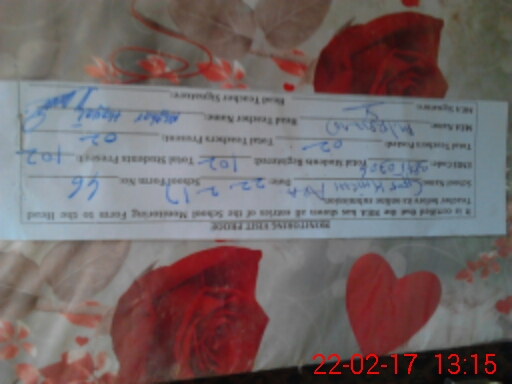 MONITORING VISIT PROOF
It is certified that the MEA has shown all entries of the School Monitoring Form to the Head
Teacher before online submission.
School Name: Date: 22-2-17 School Form No: 66
EMIS Code: Total Students Registered: 102 Total Students Present: 102
Total Teachers Posted: 02 Total Teachers Present: 02
MEA Name: Head Teacher Name:
MEA Signature: Head Teacher Signature:
22-02-17 13:15